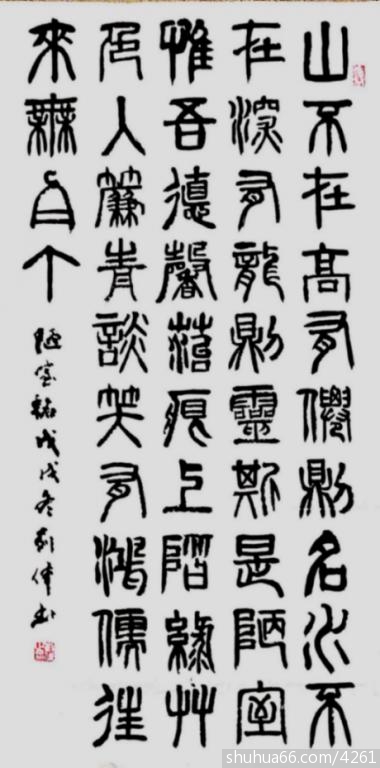 山不在高有僊則名水不
在深有龍則靈斯是陋室
惟吾德馨苔痕上階綠艸
色入簾青談笑有鴻儒往
來無白丁
陋室銘戊戌冬
shuhua66.com/4261